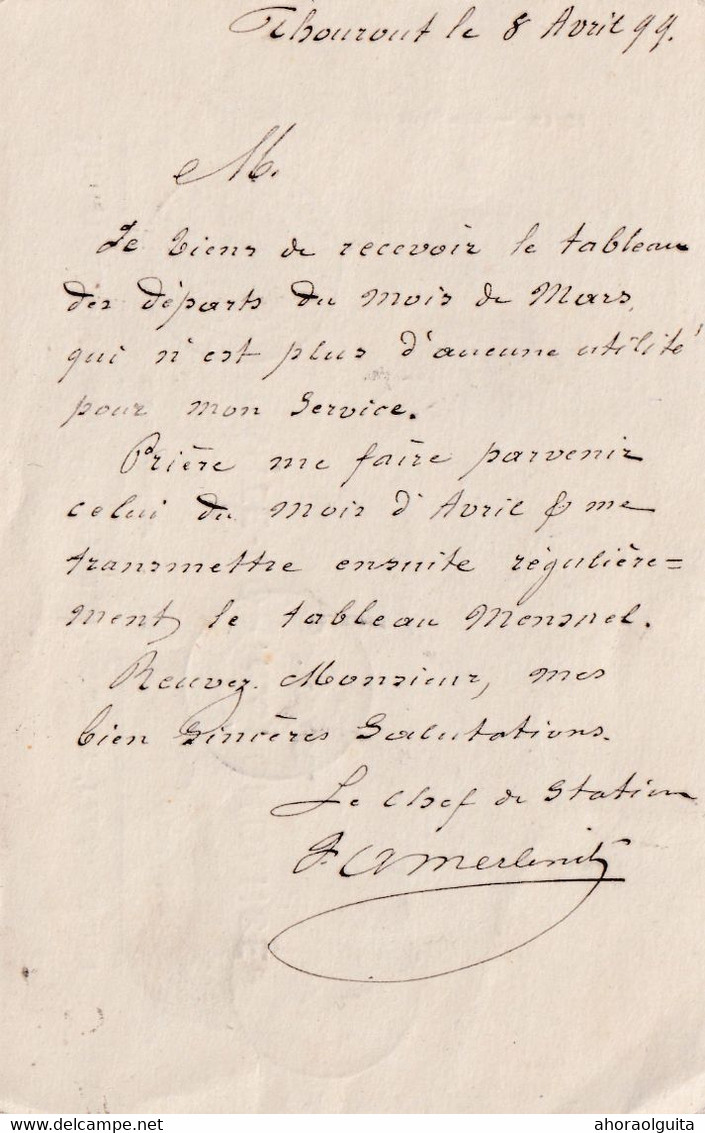 Thourout le 8 Avril 99.
M.
Je viens de recevoir le tableau
des départs du mois de Mars,
qui n'est plus d'aucune utilité
pour mon Service.
Prière me faire parvenir
celui du mois d'Avril & me
transmettre ensuite régulière=
ment, le tableau Mensuel.
Recevez Monsieur, mes
bien Sincères Salutations.
Le chef de Station
www.delcampe.net
ahoraolguita